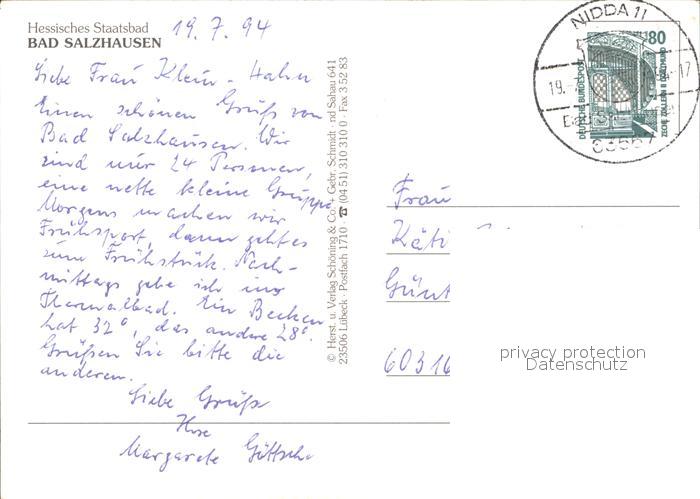 Hessisches Staatsbad
BAD SALZHAUSEN
19.7.94
Liebe Frau Klein-Hahn
Einen schönen Gruß von
Bad Salzhausen. Wir
sind nur 24 Personen,
eine nette kleine Gruppe
Morgens machen wir
Frühsport, dann geht es
zum Frühstück. Nach-
mittags gehe ich ins
Thermalbad. Ein Becken
hat 32°, das andere 28°.
Grüßen Sie bitte die
anderen.
Liebe Grüße
Ihre
Margarete
© Herst. u. Verlag Schöning & Co + Gebr. Schmidt · nd Sahau 641
23506 Lübeck · Postfach 1710 · ☎ (04 51) 310 310 0 · Fax 3 52 83
NIDDA 11
19.
17
6366
80
DEUTSCHE BUNDESPOST
ZECHE ZOLLERN II DORTMUND
Frau
Käti
Günt
60316
privacy protection
Datenschutz